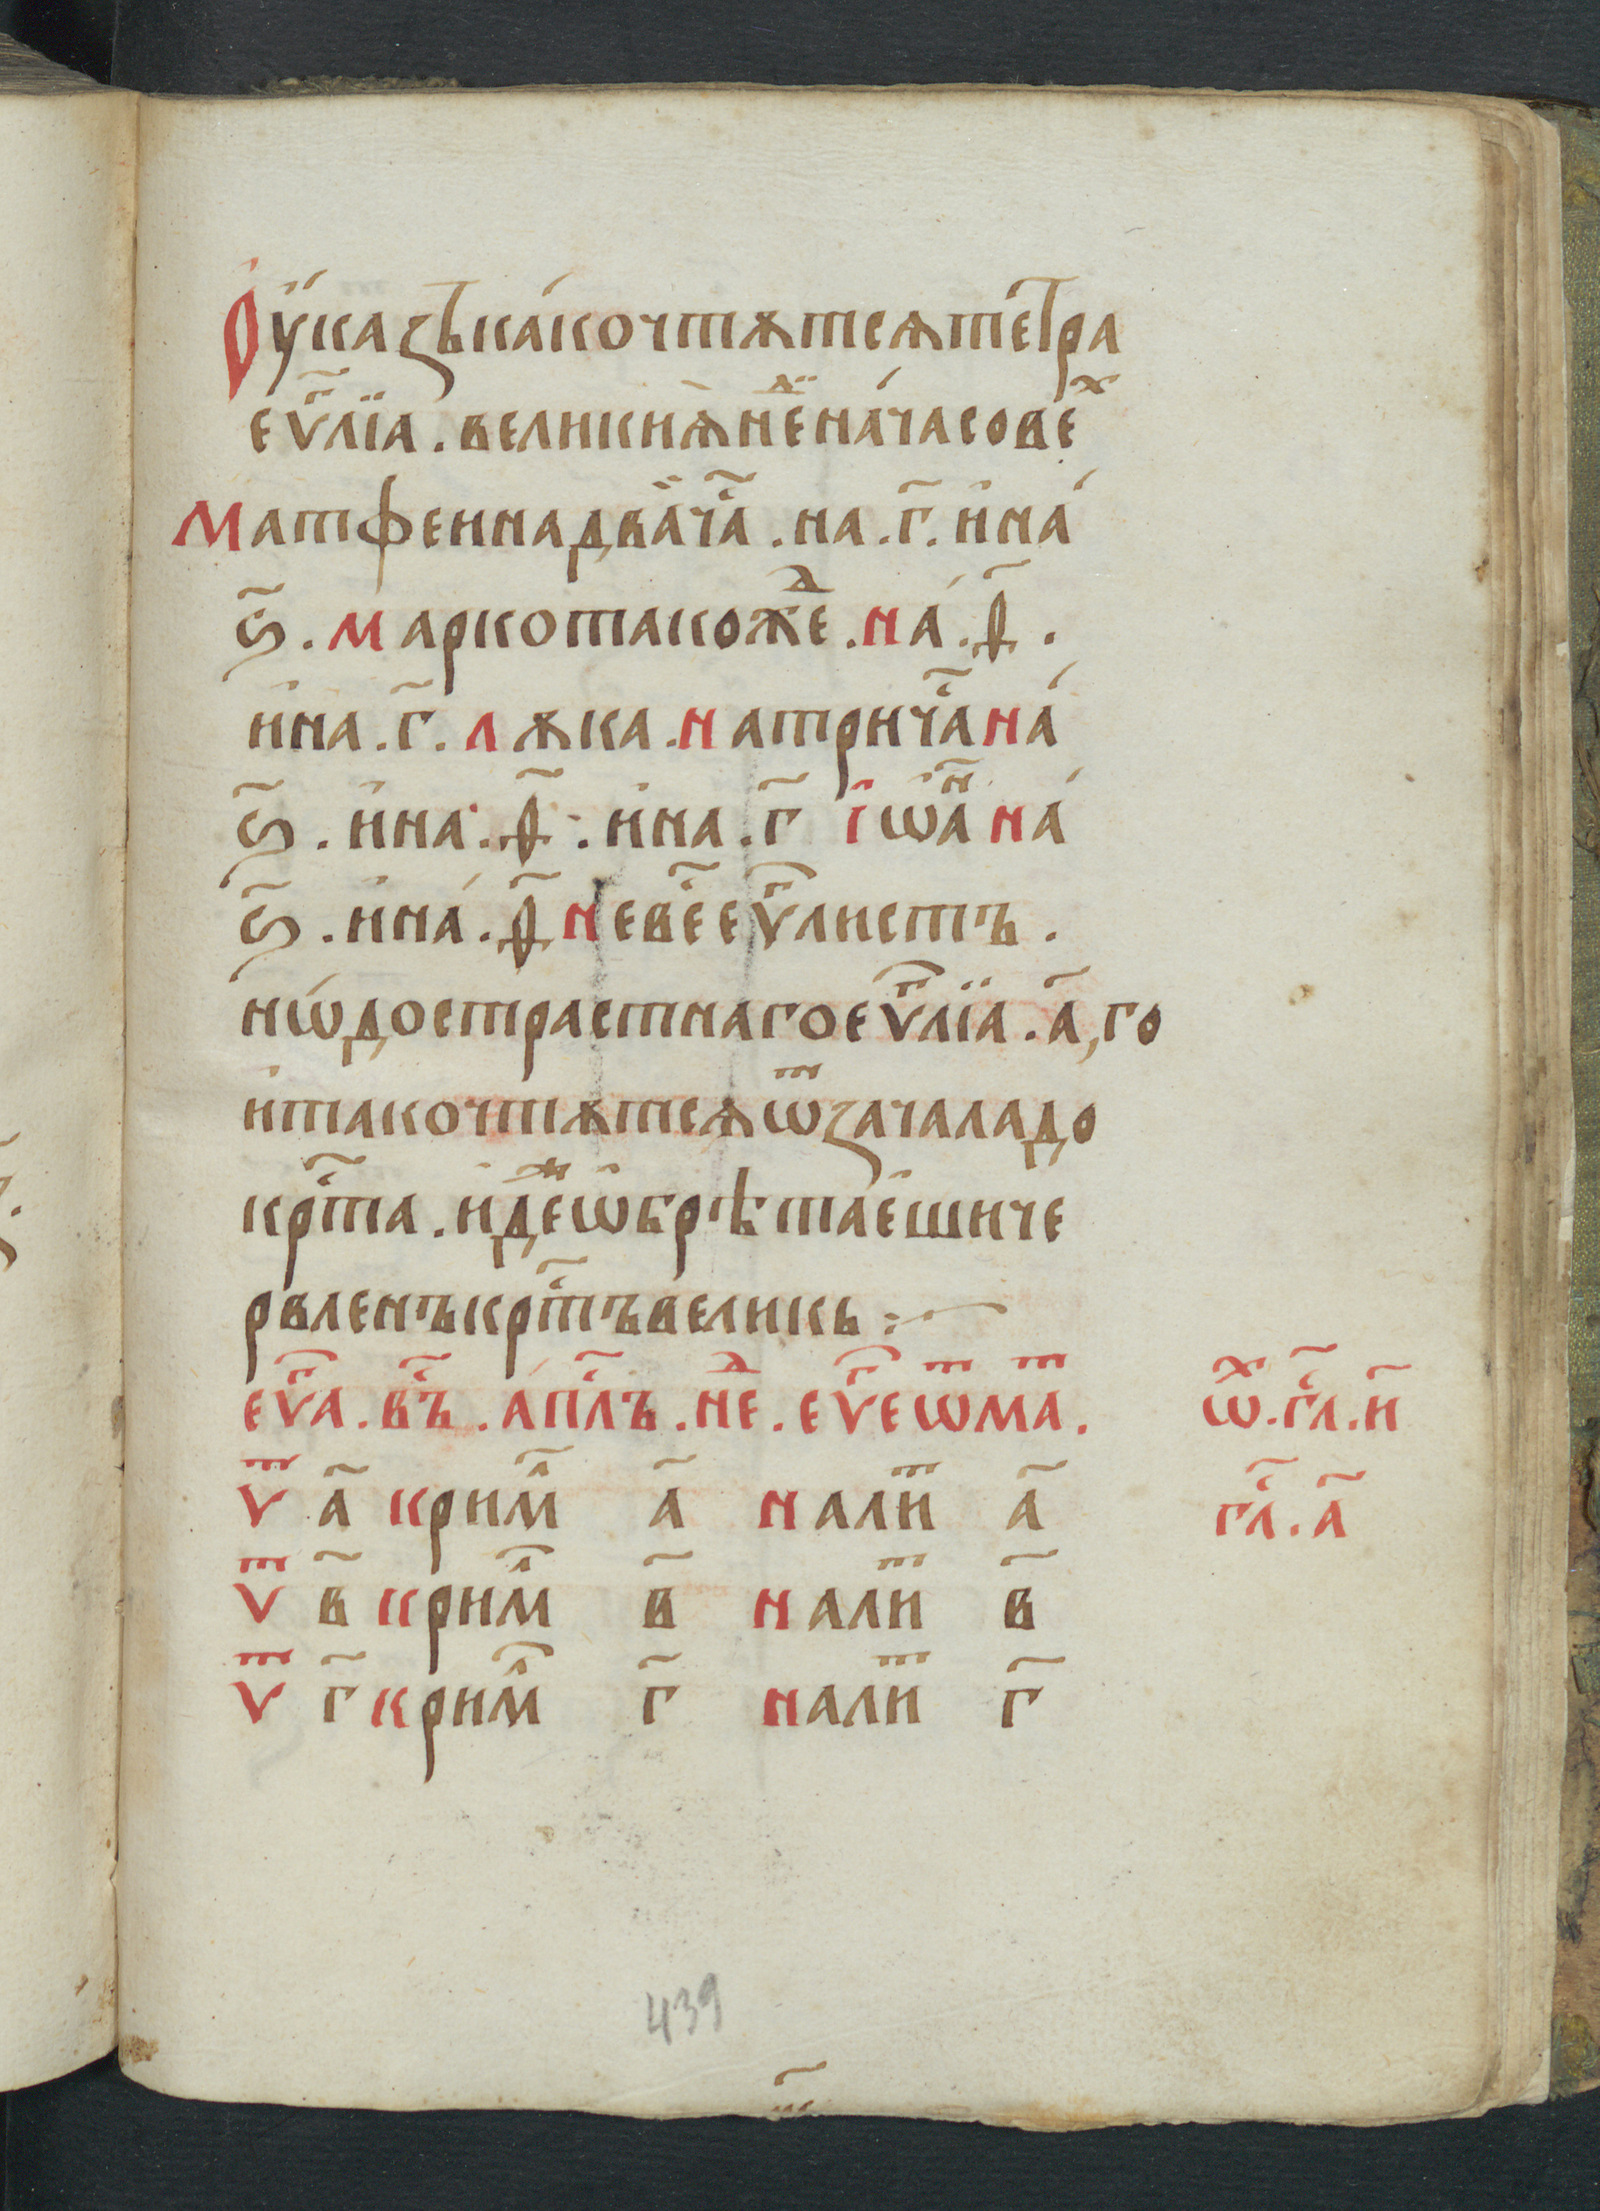 Оу҆каꙁъ ка́ко чтѫтсѧ те́тра
еѵⷢ҇лїа . великиѧ̀ нⷣе҇ на́ часовеⷯ
Матфеи на два̀ чⷭ҇а̀ . на . г҃ . и҆ на́
ѕ҃ . Марко такожⷣе . На́ . ѳ҃ .
и҆ на . г҃ . Лѫка . На три чⷭ҇а̀ На́
ѕ҃ . и҆ на . ѳ҃ . и҆ на . г҃ І҆ѡ҆аⷩ҇ На́
ѕ҃ . и҆ на́ . ѳ҃ Не веⷭ҇ еѵⷢ҇листъ .
нѡ́ до страстнаго еѵⷢ҇лїа . а҃,го
и҆ тако чтѫтсѧ ѿ ꙁачала до
крⷭ҇та . и҆дⷤе ѡ҆брѣтае́ши че
рвленъ крⷭ҇тъ великь :~
еѵⷢ҇а . вⷭ҇ъ . а҆пⷭ҇лъ . нⷣе . еѵⷢ҇е ѿ маⷮ . ѡⷯ . гⷧ҇л . и҃
Ѵⷮ а҃ К римⷧ҇ а҃ На лиⷮ а҃ гⷧ҇л . а҃
Ѵⷮ в҃ К римⷧ҇ в҃ На лиⷮ в҃
Ѵⷮ г҃ К римⷧ҇ г҃ На лиⷮ г҃
439